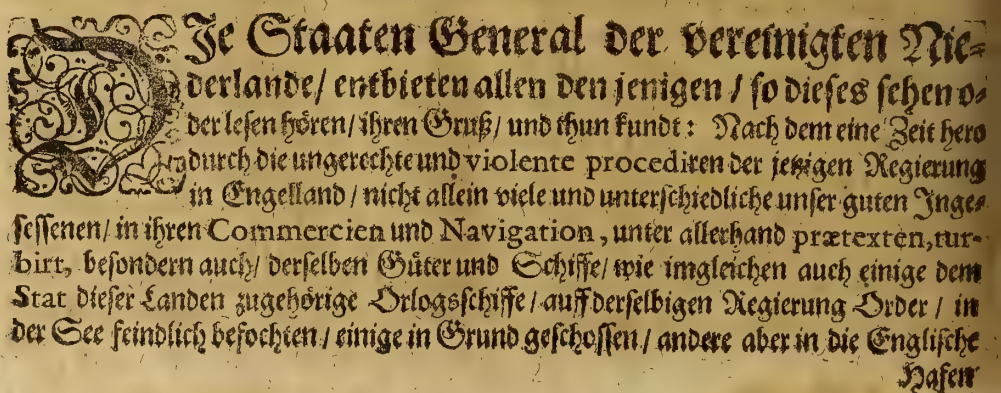 DIe Staaten General der vereinigten Nie-
derlande/ entbieten allen den jenigen / so dieses sehen o-
der lesen hören/ ihren Gruß/ und thun kundt: Nach dem eine Zeit hero
durch die ungerechte und violente procediren der jetzigen Regierung
in Engelland / nicht allein viele und unterschiedliche unser guten Inge-
sessenen/ in ihren Commercien und Navigation, unter allerhand prætexten, tur-
birt, besondern auch/ derselben Güter und Schiffe/ wie imgleichen auch einige dem
Stat dieser Landen zugehörige Orlogsschiffe / auff derselbigen Regierung Order / in
der See feindlich befochten / einige in Grund geschossen / andere aber in die Englische
Hafen